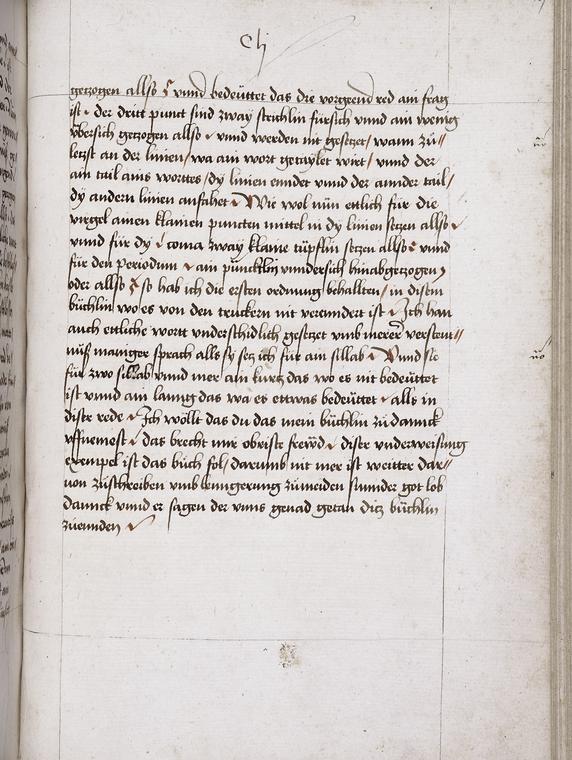 Clj
getzogen allso ⸮ vnnd bedeüttet das die vorgeend red ain frag
ist · der dritt punct sind zway strichlin fürsich vnnd ain wenig
übersich getzogen allso · vnnd werden nit gesetzet / wann zů
letzst an der linien / wa ain wort getaylet wirt / vnnd der
ain tail ains worttes / dy linien enndet vnnd der annder tail /
dy andern linien anfahet · Wie wol nün ettlich für die
virgel ainen klainen puncten mittel in dy linien setzen allso ·
vnnd für dy coma zway klaine tüpfflin setzen allso : vnnd
für den periodum · ain püncktlin vnndersich hinabgetzogen ;
oder allso so hab ich die ersten ordnung behallten / in disem
büchlin wo es von den truckern nit verenndert ist · Ich han
auch ettliche wortt vnderschidlich gesetzet vmb merer verstent//
nüß maniger sprach alls sy setz ich für ain sillab · Vnnd sie
für zwo sillab vnnd mer ain kurtz das wo es nit bedeüttet
ist vnnd ain lanng das wa es ettwas bedeüttet · alls in
diser rede · Ich wöllt das du das mein büchlin zů dannck
vffnemest · das brecht mir obriste frewd · diser vnderweisung
exempel ist das bůch fol / darumb nit mer ist weitter dar//
von zůschreiben vmb lenngerung zůmeiden sunnder got lob
dannck vnnd er sagen der vnns genad getan ditz büchlin
zůennden ·